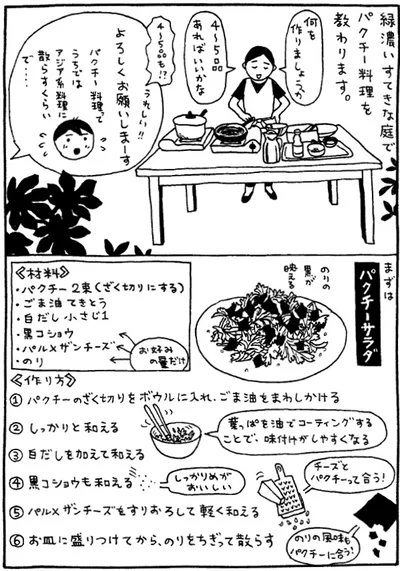 緑濃いすてきな庭で
パクチー料理を
教わります。
何を
作りましょうか
4〜5品
あればいいかな
4〜5品も!?
うれしい!!
よろしくお願いしまーす
パクチー料理って
うちでは
アジア系料理に
散らすくらい
で‥‥
まずは
パクチーサラダ
のりの
黒が
映える
《材料》
・パクチー2束(ざく切りにする)
・ごま油 てきとう
・白だし 小さじ1
・黒コショウ
・パルメザンチーズ
・のり
お好み
の量だけ
《作り方》
① パクチーのざく切りをボウルに入れ、ごま油をまわしかける
② しっかりと和える
葉っぱを油でコーティングする
ことで、味付けがしやすくなる
③ 白だしを加えて和える
④ 黒コショウも和える
しっかりめが
おいしい
チーズと
パクチーって合う!
⑤ パルメザンチーズをすりおろして軽く和える
⑥ お皿に盛りつけてから、のりをちぎって散らす
のりの風味も
パクチーに合う!